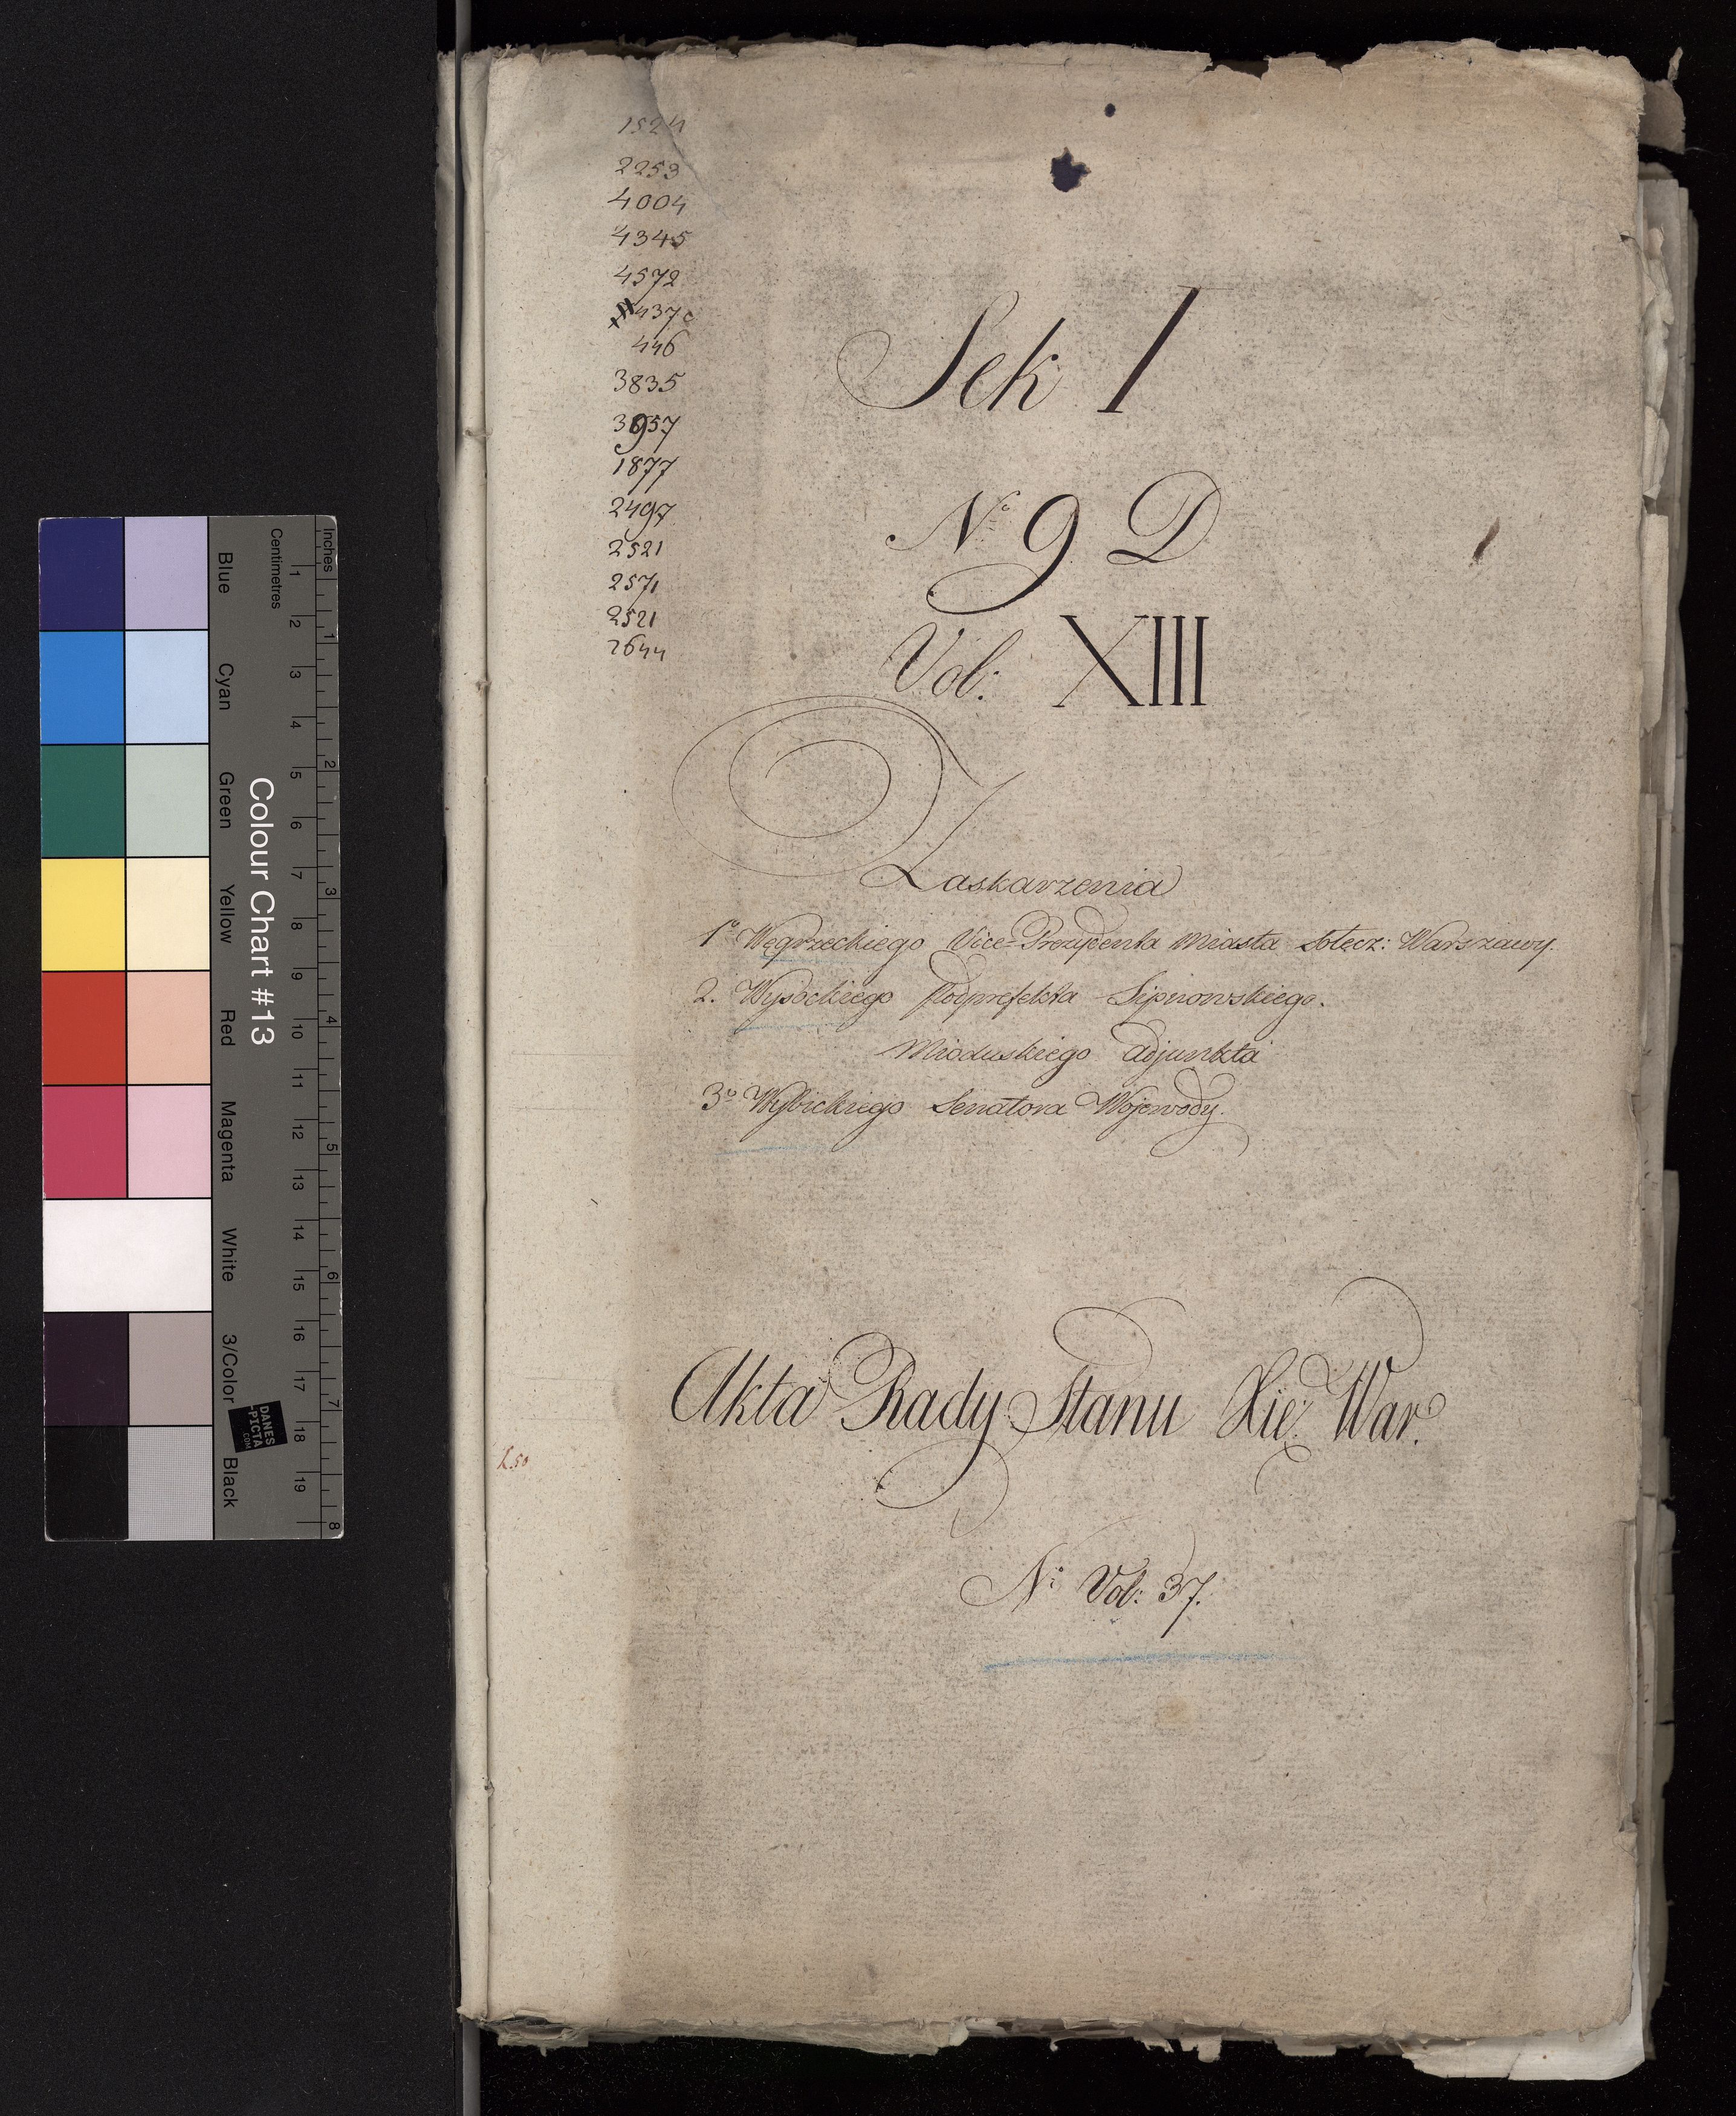 1524
2253
4004
4345
4572
4370
446
3835
3957
1877
2497
2521
2571
2521
2644
Sek I
No 9 D
Vol: XIII
Zaskarzenia
1o Węgrzeckiego Vice-Prezydenta Miasta Stołecz: Warszawy.
2. Wysockiego Podprefekta Lipnowskiego.
Mioduskiego Adjunkta
3o Wybickiego Senatora Wojewody.
Akta Rady Stanu Xię: War.
No Vol: 37.
Colour Chart #13
Blue Cyan Green Yellow Red Magenta White 3/Color Black
Inches 1 2 3 4 5 6 7 8
Centimetres 1 2 3 4 5 6 7 8 9 10 11 12 13 14 15 16 17 18 19
DANES
-PICTA
.COM